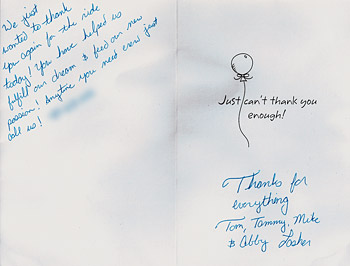 We just
wanted to thank
you again for the ride
today! You have helped us
fulfill our dream & feed our new
passion! Anytime you need crew just
call us!
Just can't thank you
enough!
Thanks for
everything
Tom, Tammy, Mike
& Abby